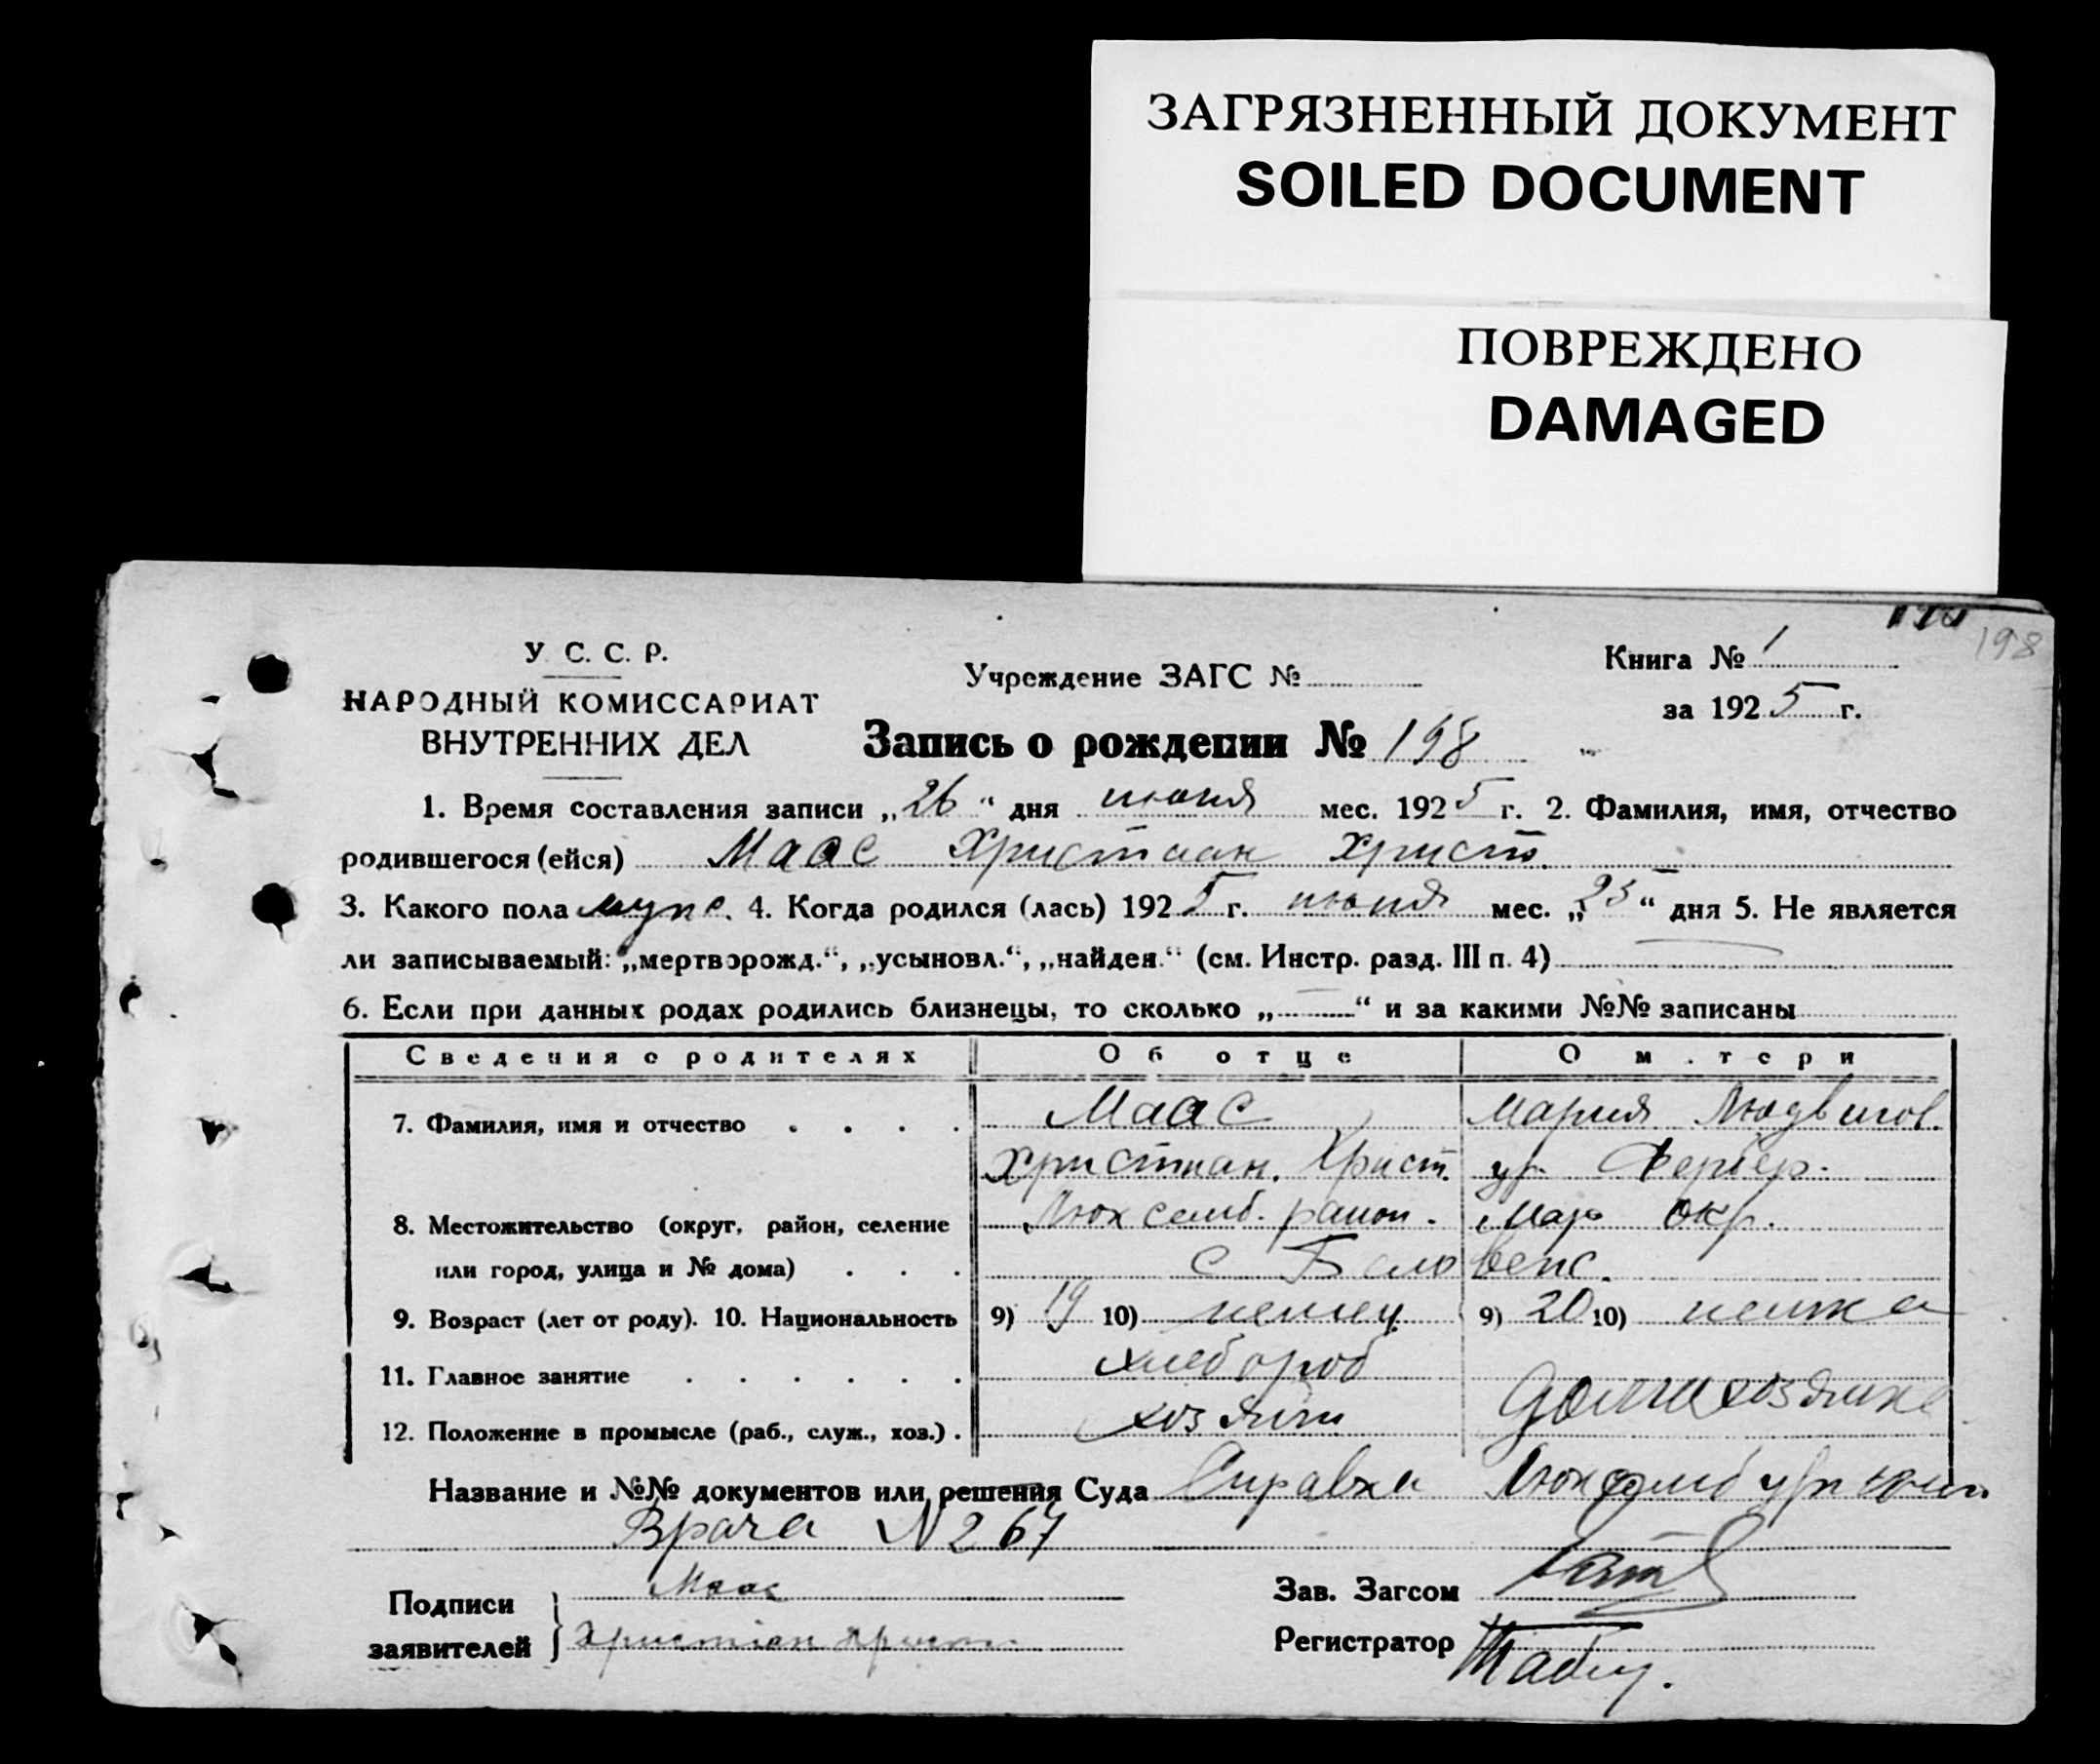 ЗАГРЯЗНЕННЫЙ ДОКУМЕНТ
SOILED DOCUMENT
ПОВРЕЖДЕНО
DAMAGED
198
У. С. С. Р.
НАРОДНЫЙ КОМИССАРИАТ
ВНУТРЕННИХ ДЕЛ
Учреждение ЗАГС №
Книга № 1
за 1925 г.
Запись о рождении № 198
1. Время составления записи „26“ дня июня мес. 1925 г. 2. Фамилия, имя, отчество
родившегося (ейся) Маас Христиан Христ.
3. Какого пола муж. 4. Когда родился (лась) 1925 г. июня мес. „25“ дня 5. Не является
ли записываемый: „мертворожд.“, „усыновл.“, „найден.“ (см. Инстр. разд. III п. 4)
6. Если при данных родах родились близнецы, то сколько „—“ и за какими №№ записаны
Сведения о родителях Об отце О матери
7. Фамилия, имя и отчество . . . . Маас Мария Людвигов.
Христиан. Христ. ур. Фербер.
8. Местожительство (округ, район, селение Люксемб. район. Мар. окр.
или город, улица и № дома) . . . с Беловеж.
9. Возраст (лет от роду). 10. Национальность 9) 19 10) немец 9) 20 10) немка
11. Главное занятие . . . . . . хлебороб
12. Положение в промысле (раб., служ., хоз.) . хозяин домохозяйка
Название и №№ документов или решения Суда Справка Люксембург
Врача N 267
Подписи заявителей } Маас
Христиан
Зав. Загсом
Регистратор